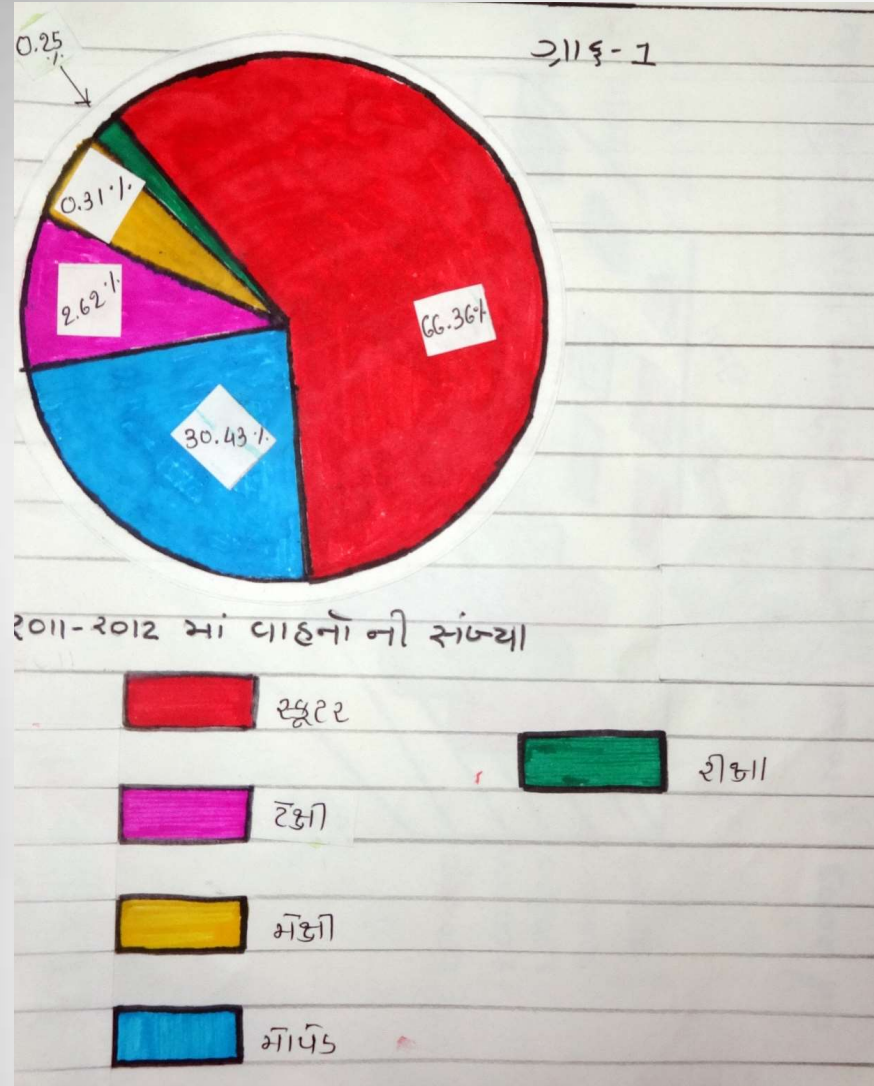 0.25 %
ગ્રાફ-1
0.31%
2.62%
66.36%
30.43%
૨૦11-૨૦12 માં વાહનો ની સંખ્યા
સ્કૂટર
રીક્ષા
ટેક્ષી
મેક્ષી
મોપેડ